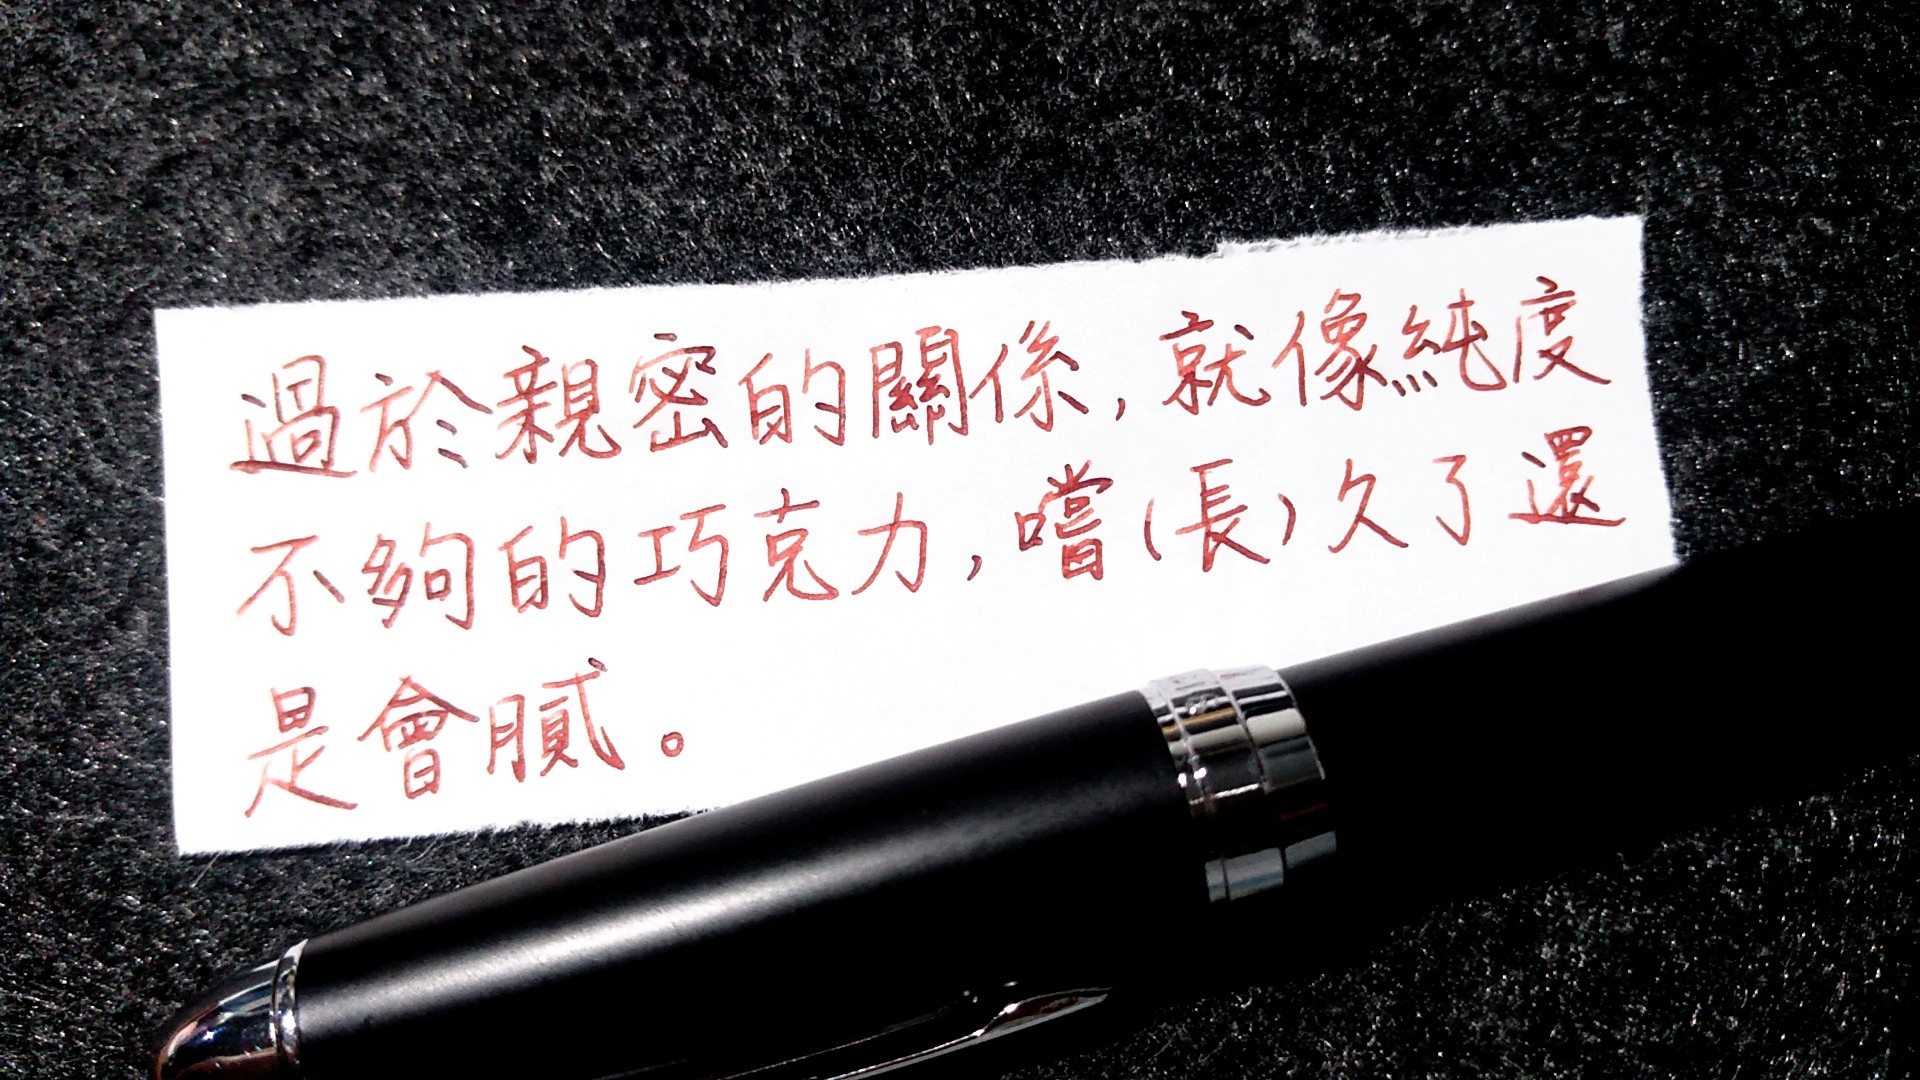 過於親密的關係,就像純度
不夠的巧克力,嚐(長)久了還
是會膩。